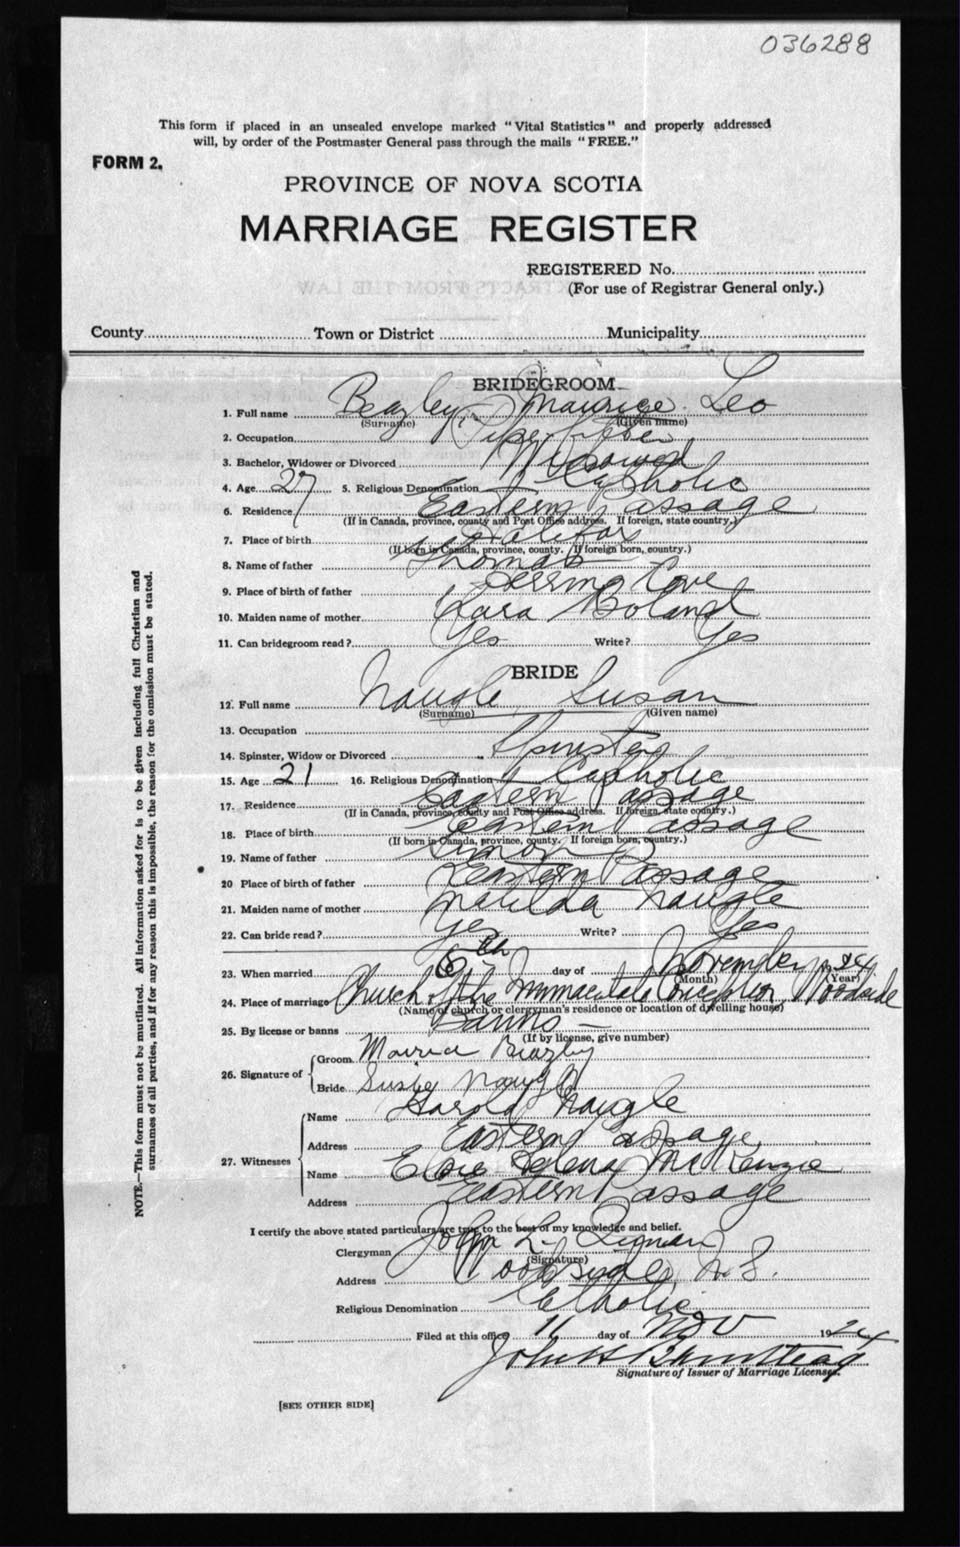 036288
This form if placed in an unsealed envelope marked "Vital Statistics" and properly addressed
will, by order of the Postmaster General pass through the mails "FREE."
FORM 2.
PROVINCE OF NOVA SCOTIA
MARRIAGE REGISTER
REGISTERED No.
(For use of Registrar General only.)
County Town or District Municipality
BRIDEGROOM
1. Full name Beazley Maurice Leo
(Surname) (Given name)
2. Occupation
3. Bachelor, Widower or Divorced Widower
4. Age 27 5. Religious Denomination Catholic
6. Residence Eastern Passage
(If in Canada, province, county and Post Office address. If foreign, state country.)
7. Place of birth Halifax
(If born in Canada, province, county. If foreign born, country.)
8. Name of father Thomas
9. Place of birth of father Cove
10. Maiden name of mother Boland
11. Can bridegroom read? Yes Write? Yes
BRIDE
12. Full name Naugle Susan
(Surname) (Given name)
13. Occupation
14. Spinster, Widow or Divorced Spinster
15. Age 21 16. Religious Denomination Catholic
17. Residence Eastern Passage
(If in Canada, province, county and Post Office address. If foreign, state country.)
18. Place of birth Eastern Passage
(If born in Canada, province, county. If foreign born, country.)
19. Name of father Simon
20 Place of birth of father Eastern Passage
21. Maiden name of mother Matilda Naugle
22. Can bride read? Yes Write? Yes
23. When married 6th day of November 1924
(Month) (Year)
24. Place of marriage Church of the Immaculate Conception, Woodside
(Name of church or clergyman's residence or location of dwelling house)
25. By license or banns Banns
(If by license, give number)
26. Signature of
Groom Beazley
Bride Susie Naugle
27. Witnesses
Name Harold Naugle
Address Eastern Passage
Name Elsie Helena McKenzie
Address Eastern Passage
I certify the above stated particulars are true to the best of my knowledge and belief.
Clergyman John L.
(Signature)
Address Woodside, N.S.
Religious Denomination Catholic
Filed at this office 11 day of Nov 1924
John H
Signature of Issuer of Marriage Licenses.
[SEE OTHER SIDE]
NOTE.—This form must not be mutilated. All information asked for is to be given including full Christian and
surnames of all parties, and if for any reason this is impossible, the reason for the omission must be stated.